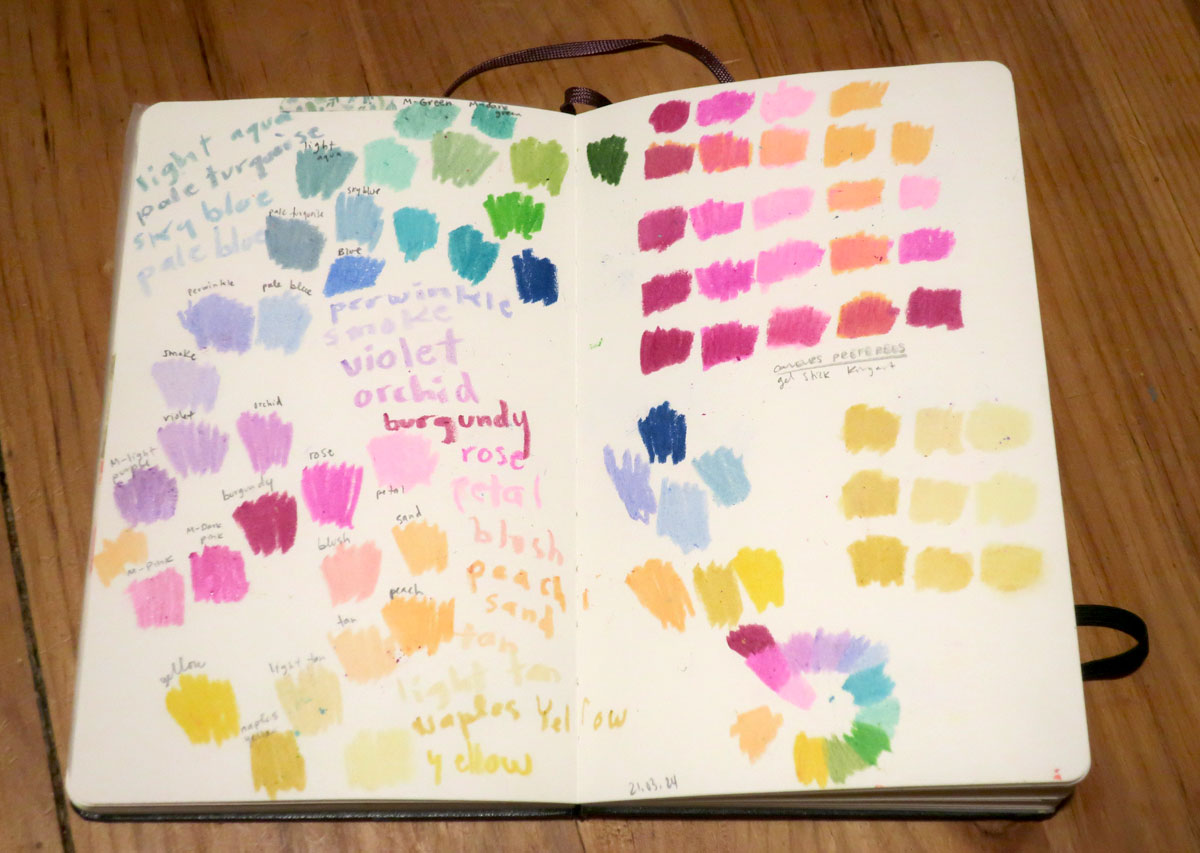 light aqua
pale turquoise
sky blue
pale blue
M-Green
light aqua
sky blue
pale turquoise
Blue
periwinkle
pale blue
smoke
violet
orchid
M-light purple
burgundy
rose
petal
M-Dark pink
M-Pink
blush
sand
peach
tan
yellow
light tan
naples
perwinkle
smoke
violet
orchid
burgundy
rose
petal
blush
peach
sand
tan
light tan
naples Yellow
yellow
COULEURS PREFEREES
gel stick
21.03.24